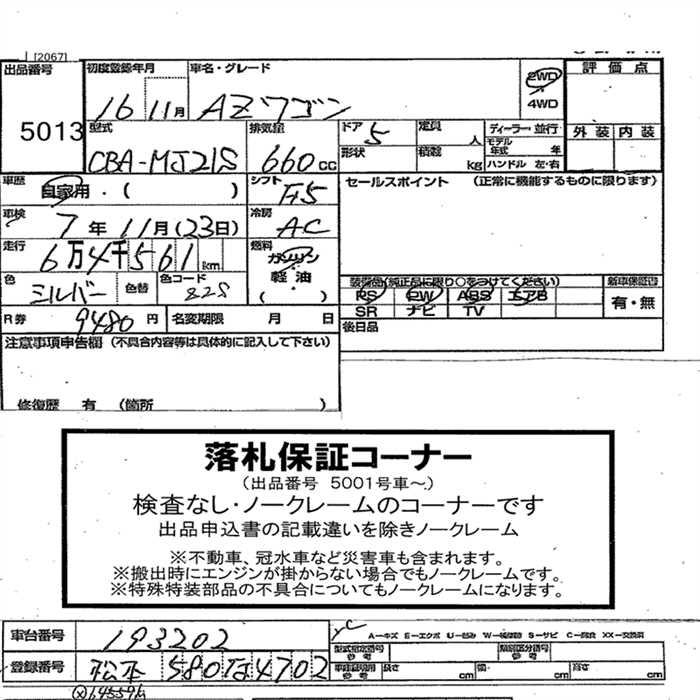 [2067]
出品番号 初度登録年月 車名・グレード 2WD 4WD 評価点
5013 16年 11月 AZワゴン 外装 内装
型式 CBA-MJ21S 排気量 660cc ドア 5 定員 人 ディーラー・並行
形状 積載 kg モデル年式 年 ハンドル 左・右
車歴 自家用・( ) シフト F5 セールスポイント (正常に機能するものに限ります)
車検 7年11月(23日) 冷房 AC
走行 6万4千561km 燃料 ガソリン 軽油 ( )
色 シルバー 色替 色コード 22S
装備品(純正品に限り○をつけてください) 新車保証書
PS PW ABS エアB 有・無
SR ナビ TV
R券 9480円 名変期限 月 日 後日品
注意事項申告欄 (不具合内容等は具体的に記入して下さい)
修復歴 有 (箇所 )
落札保証コーナー
(出品番号 5001号車～)
検査なし・ノークレームのコーナーです
出品申込書の記載違いを除きノークレーム
※不動車、冠水車など災害車も含まれます。
※搬出時にエンジンが掛からない場合でもノークレームです。
※特殊特装部品の不具合についてもノークレームになります。
車台番号 193202 A−キズ E−エクボ U−凹み W−補修跡 S−サビ C−腐食 XX−交換済
型式指定番号 参考 類別区分番号 参考
登録番号 松本 580 な 4702 長さ cm 幅 cm 高さ cm